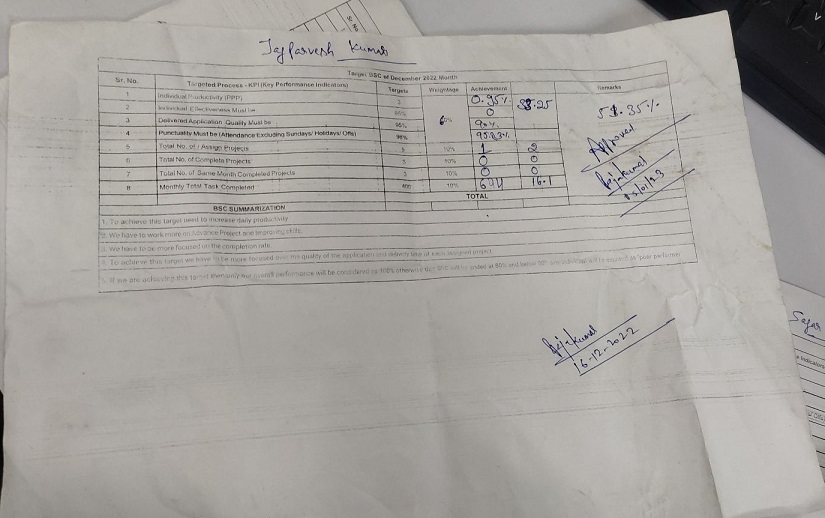 Tajparvesh Kumar
Target BSC of December 2022 Month
Sr. No. Targeted Process - KPI (Key Performance Indicators) Targets Weightage Achievement Remarks
1 Individual Productivity (PPP) 0.95%
2 Individual Effectiveness Must be 0
3 Delivered Application Quality Must be 95% 60% 90% 38.25 51.35%
4 Punctuality Must be (Attendance Excluding Sundays/ Holidays/ Offs) 98% 95.83%
5 Total No. of / Assign Projects 5 10% 1 2
6 Total No. of Complete Projects 5 10% 0 0
7 Total No. of Same Month Completed Projects 10% 0 0
8 Monthly Total Task Completed 400 10% 644 16.1
TOTAL
Approved
03/01/23
BSC SUMMARIZATION
1. To achieve this target need to increase daily productivity.
2. We have to work more on Advance Project and improving skills.
3. We have to be more focused on the completion rate.
4. To achieve this target we have to be more focused over the quality of the application and delivery time of each assigned project.
5. If we are achieving this target then only our overall performance will be considered as 100% otherwise
16-12-2022
Sagar